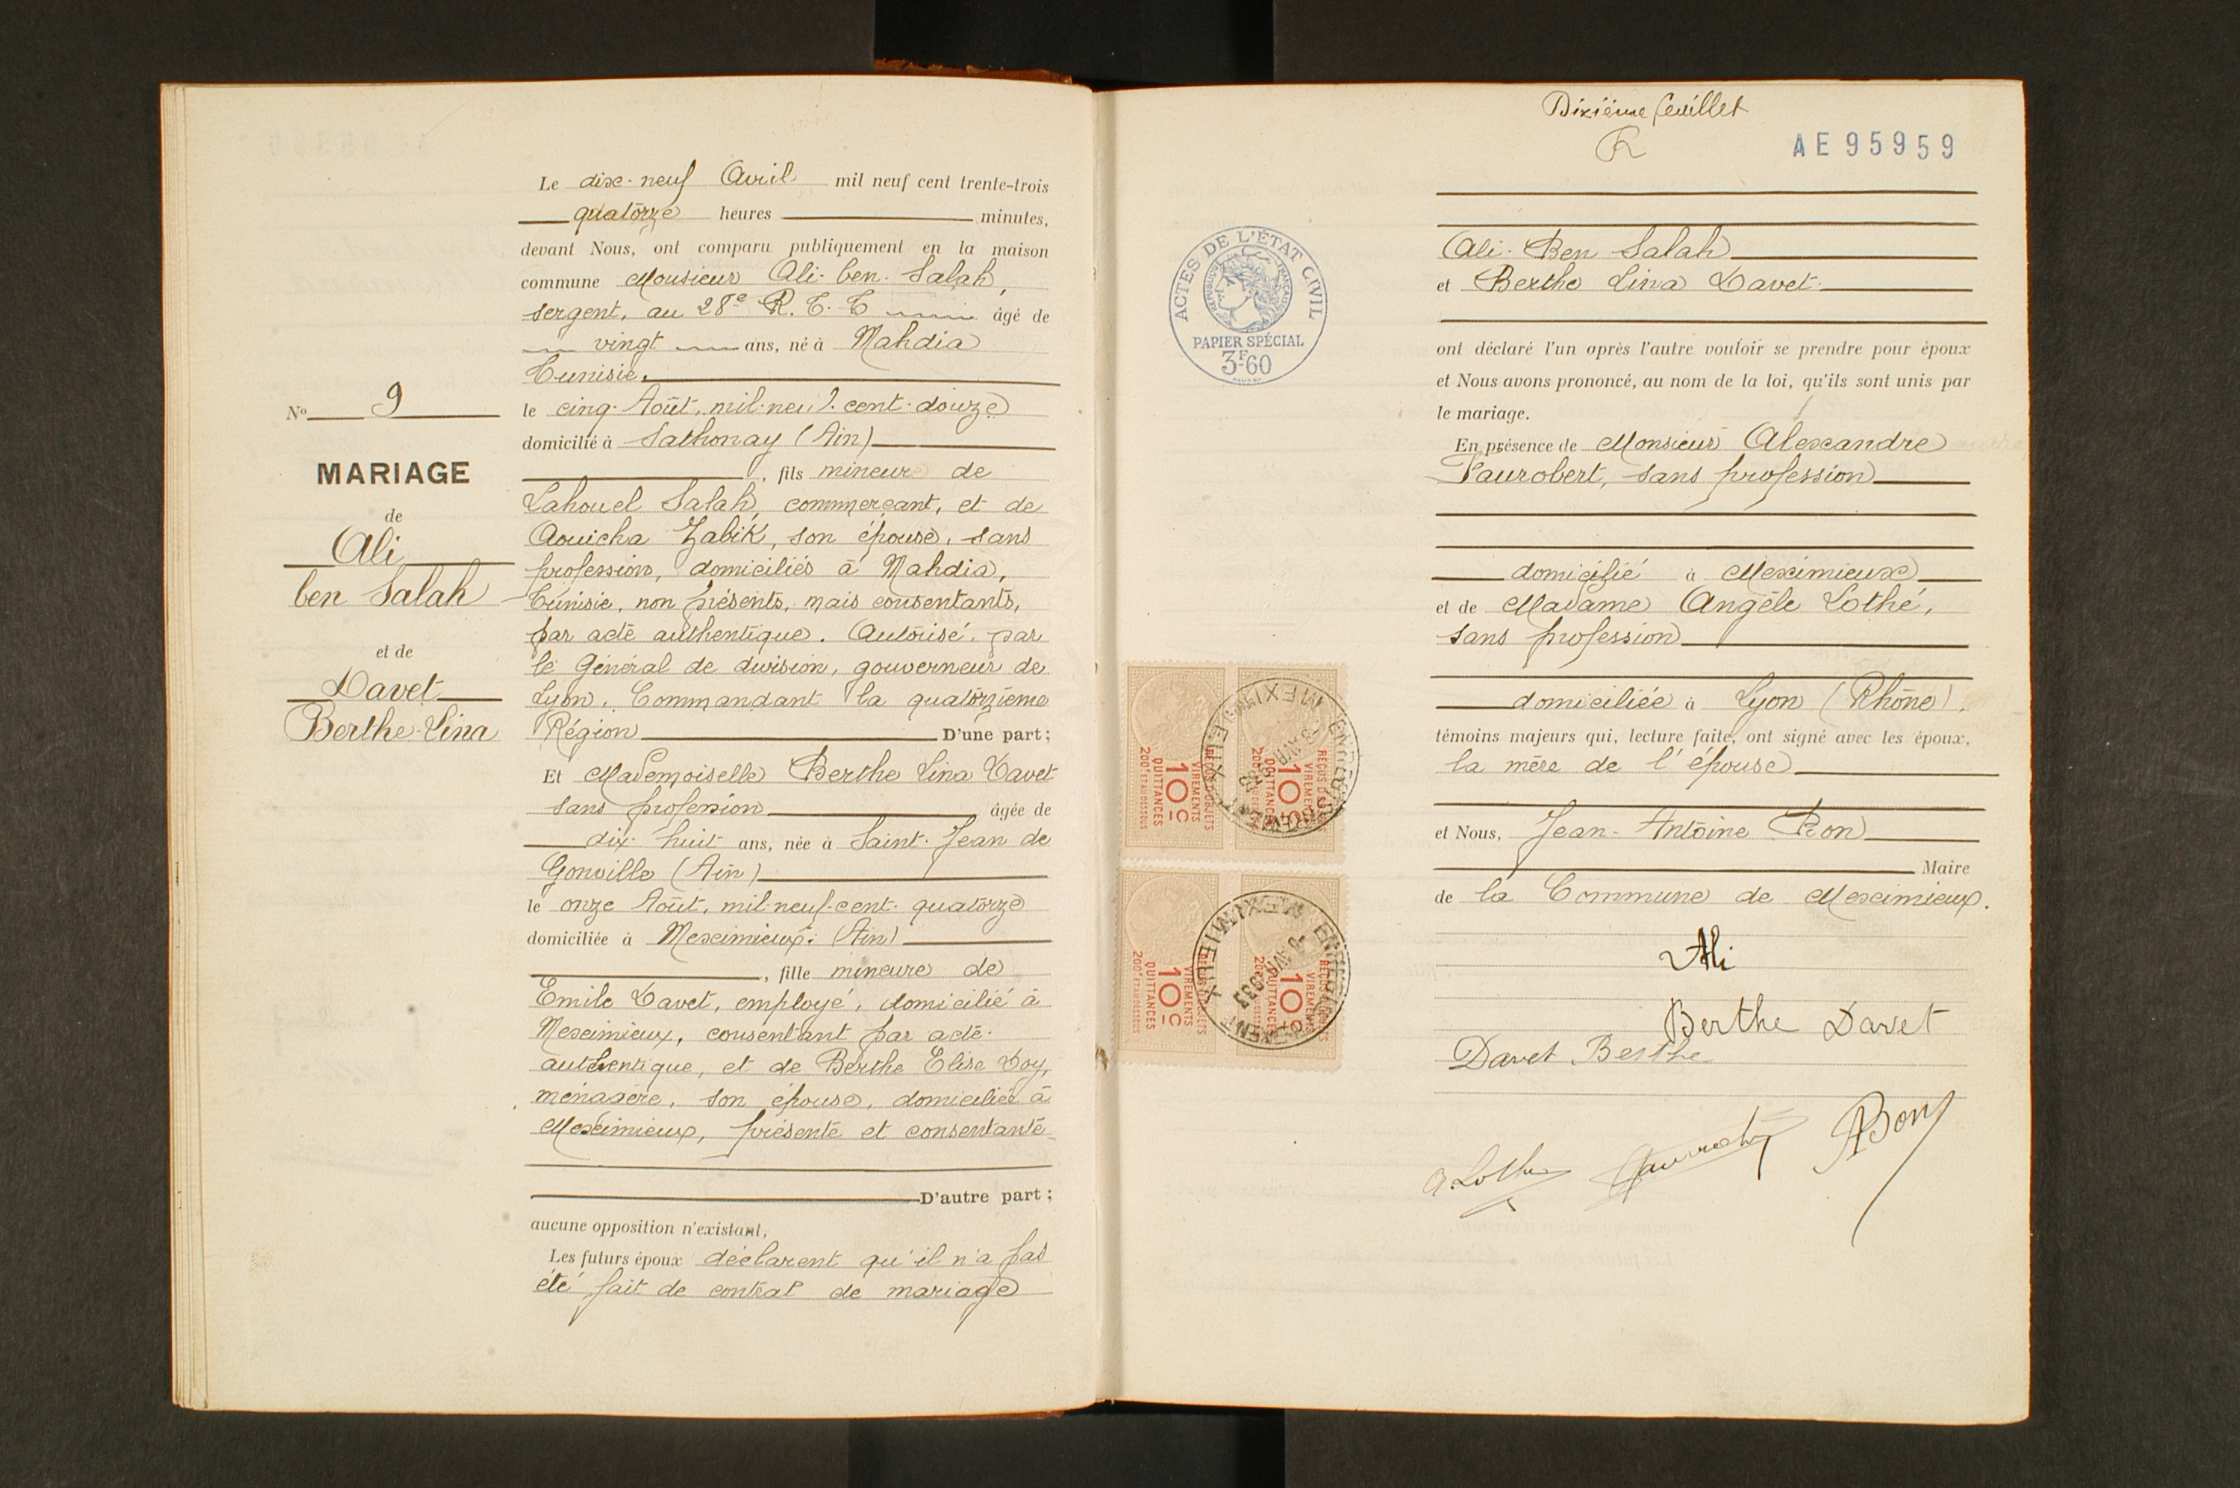 Le dix-neuf Avril mil neuf cent trente-trois
quatorze heures minutes,
devant Nous, ont comparu publiquement en la maison
commune Monsieur Ali-ben-Salah,
sergent, au 28e R. T. T âgé de
vingt ans, né à Mahdia
Tunisie.
le cinq Août, mil-neuf-cent-douze
domicilié à Sathonay (Ain)
, fils mineur de
Lahouel Salah, commerçant, et de
Aouicha Zabik, son épouse, sans
profession, domiciliés à Mahdia,
Tunisie, non présents, mais consentants,
par acte authentique. Autorisé par
le Général de division, gouverneur de
Lyon, Commandant la quatorzième
Région D'une part;
Et Mademoiselle Berthe Lina Davet
sans profession âgée de
dix-huit ans, née à Saint-Jean de
Gonville (Ain)
le onze Août, mil-neuf-cent-quatorze
domiciliée à Meximieux (Ain)
, fille mineure de
Emile Davet, employé, domicilié à
Meximieux, consentant par acte
authentique, et de Berthe Elise Doy,
ménagère, son épouse, domiciliée à
Meximieux, présente et consentante
D'autre part;
aucune opposition n'existant,
Les futurs époux déclarent qu'il n'a pas
été fait de contrat de mariage
No 9
MARIAGE
de
Ali
ben Salah
et de
Davet
Berthe-Lina
Dixième feuillet
AE95959
ACTES DE L'ÉTAT CIVIL
RÉPUBLIQUE FRANÇAISE
PAPIER SPÉCIAL
3F60
Ali-Ben Salah
et Berthe Lina Davet
ont déclaré l'un après l'autre vouloir se prendre pour époux
et Nous avons prononcé, au nom de la loi, qu'ils sont unis par
le mariage.
En présence de Monsieur Alexandre
Faurobert, sans profession
domicilié à Meximieux
et de Madame Angèle Lothé,
sans profession
domiciliée à Lyon (Rhône).
témoins majeurs qui, lecture faite, ont signé avec les époux,
la mère de l'épouse
et Nous, Jean-Antoine Bon
Maire
de la Commune de Meximieux.
Ali
Berthe Davet
Davet Berthe
A Lothe
ABon
REÇUS D'OBJETS
VIREMENTS
10c
QUITTANCES
200F ET AU DESSOUS
REÇUS D'OBJETS
VIREMENTS
10c
QUITTANCES
ENREGISTREMENT
MEXIMIEUX
VIREMENTS
10c
QUITTANCES
200F ET AU DESSOUS
VIREMENTS
10c
QUITTANCES
ENREGISTREMENT
MEXIMIEUX